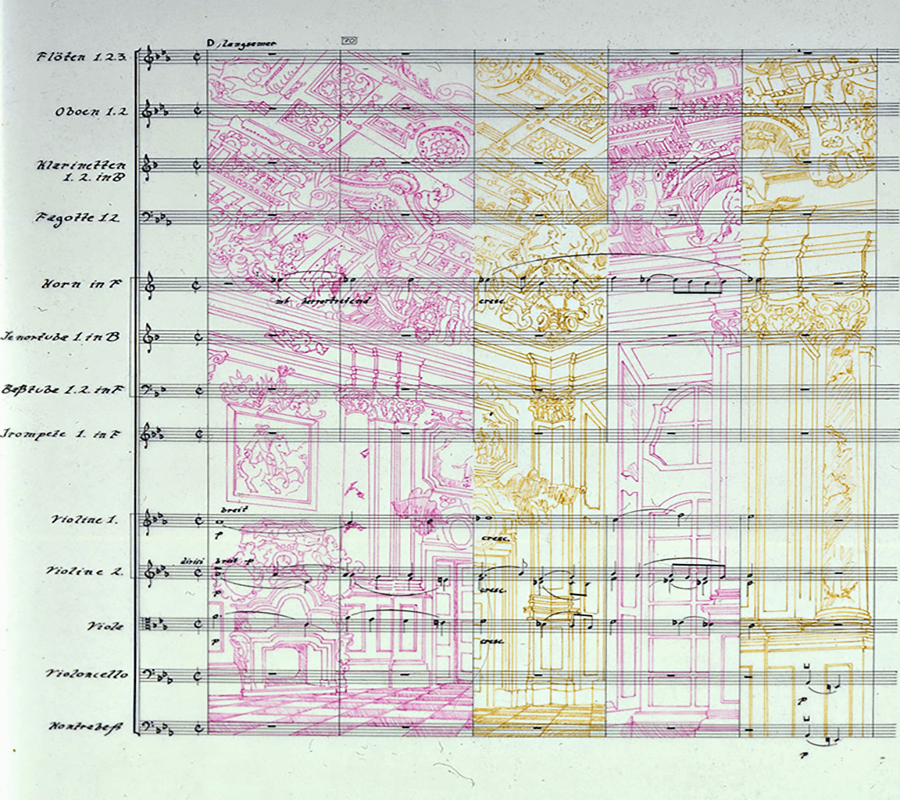 D, langsamer
70
Flöten 1.2.3.
Oboen 1.2
Klarinetten
1. 2. in B
Fagotte 1.2
Horn in F
mf hervortretend
cresc.
Tenortube 1. in B
Baßtube 1. 2. in F
Trompete 1. in F
breit
Violine 1.
p
cresc.
divisi breit p
Violine 2.
p
cresc.
Viole
p
cresc.
Violoncello
p
Kontrabaß
p